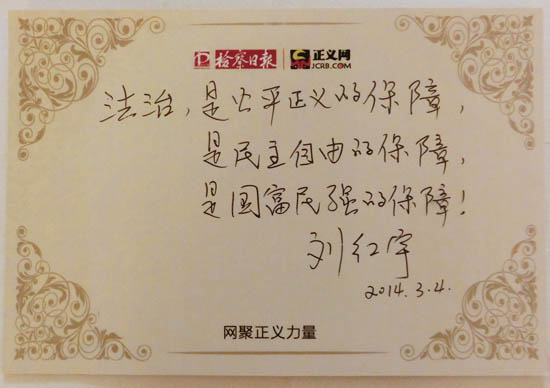 检察日报 正义网
JCRB.COM
法治，是公平正义的保障，
是民主自由的保障，
是国富民强的保障！
刘红宇
2014.3.4.
网聚正义力量